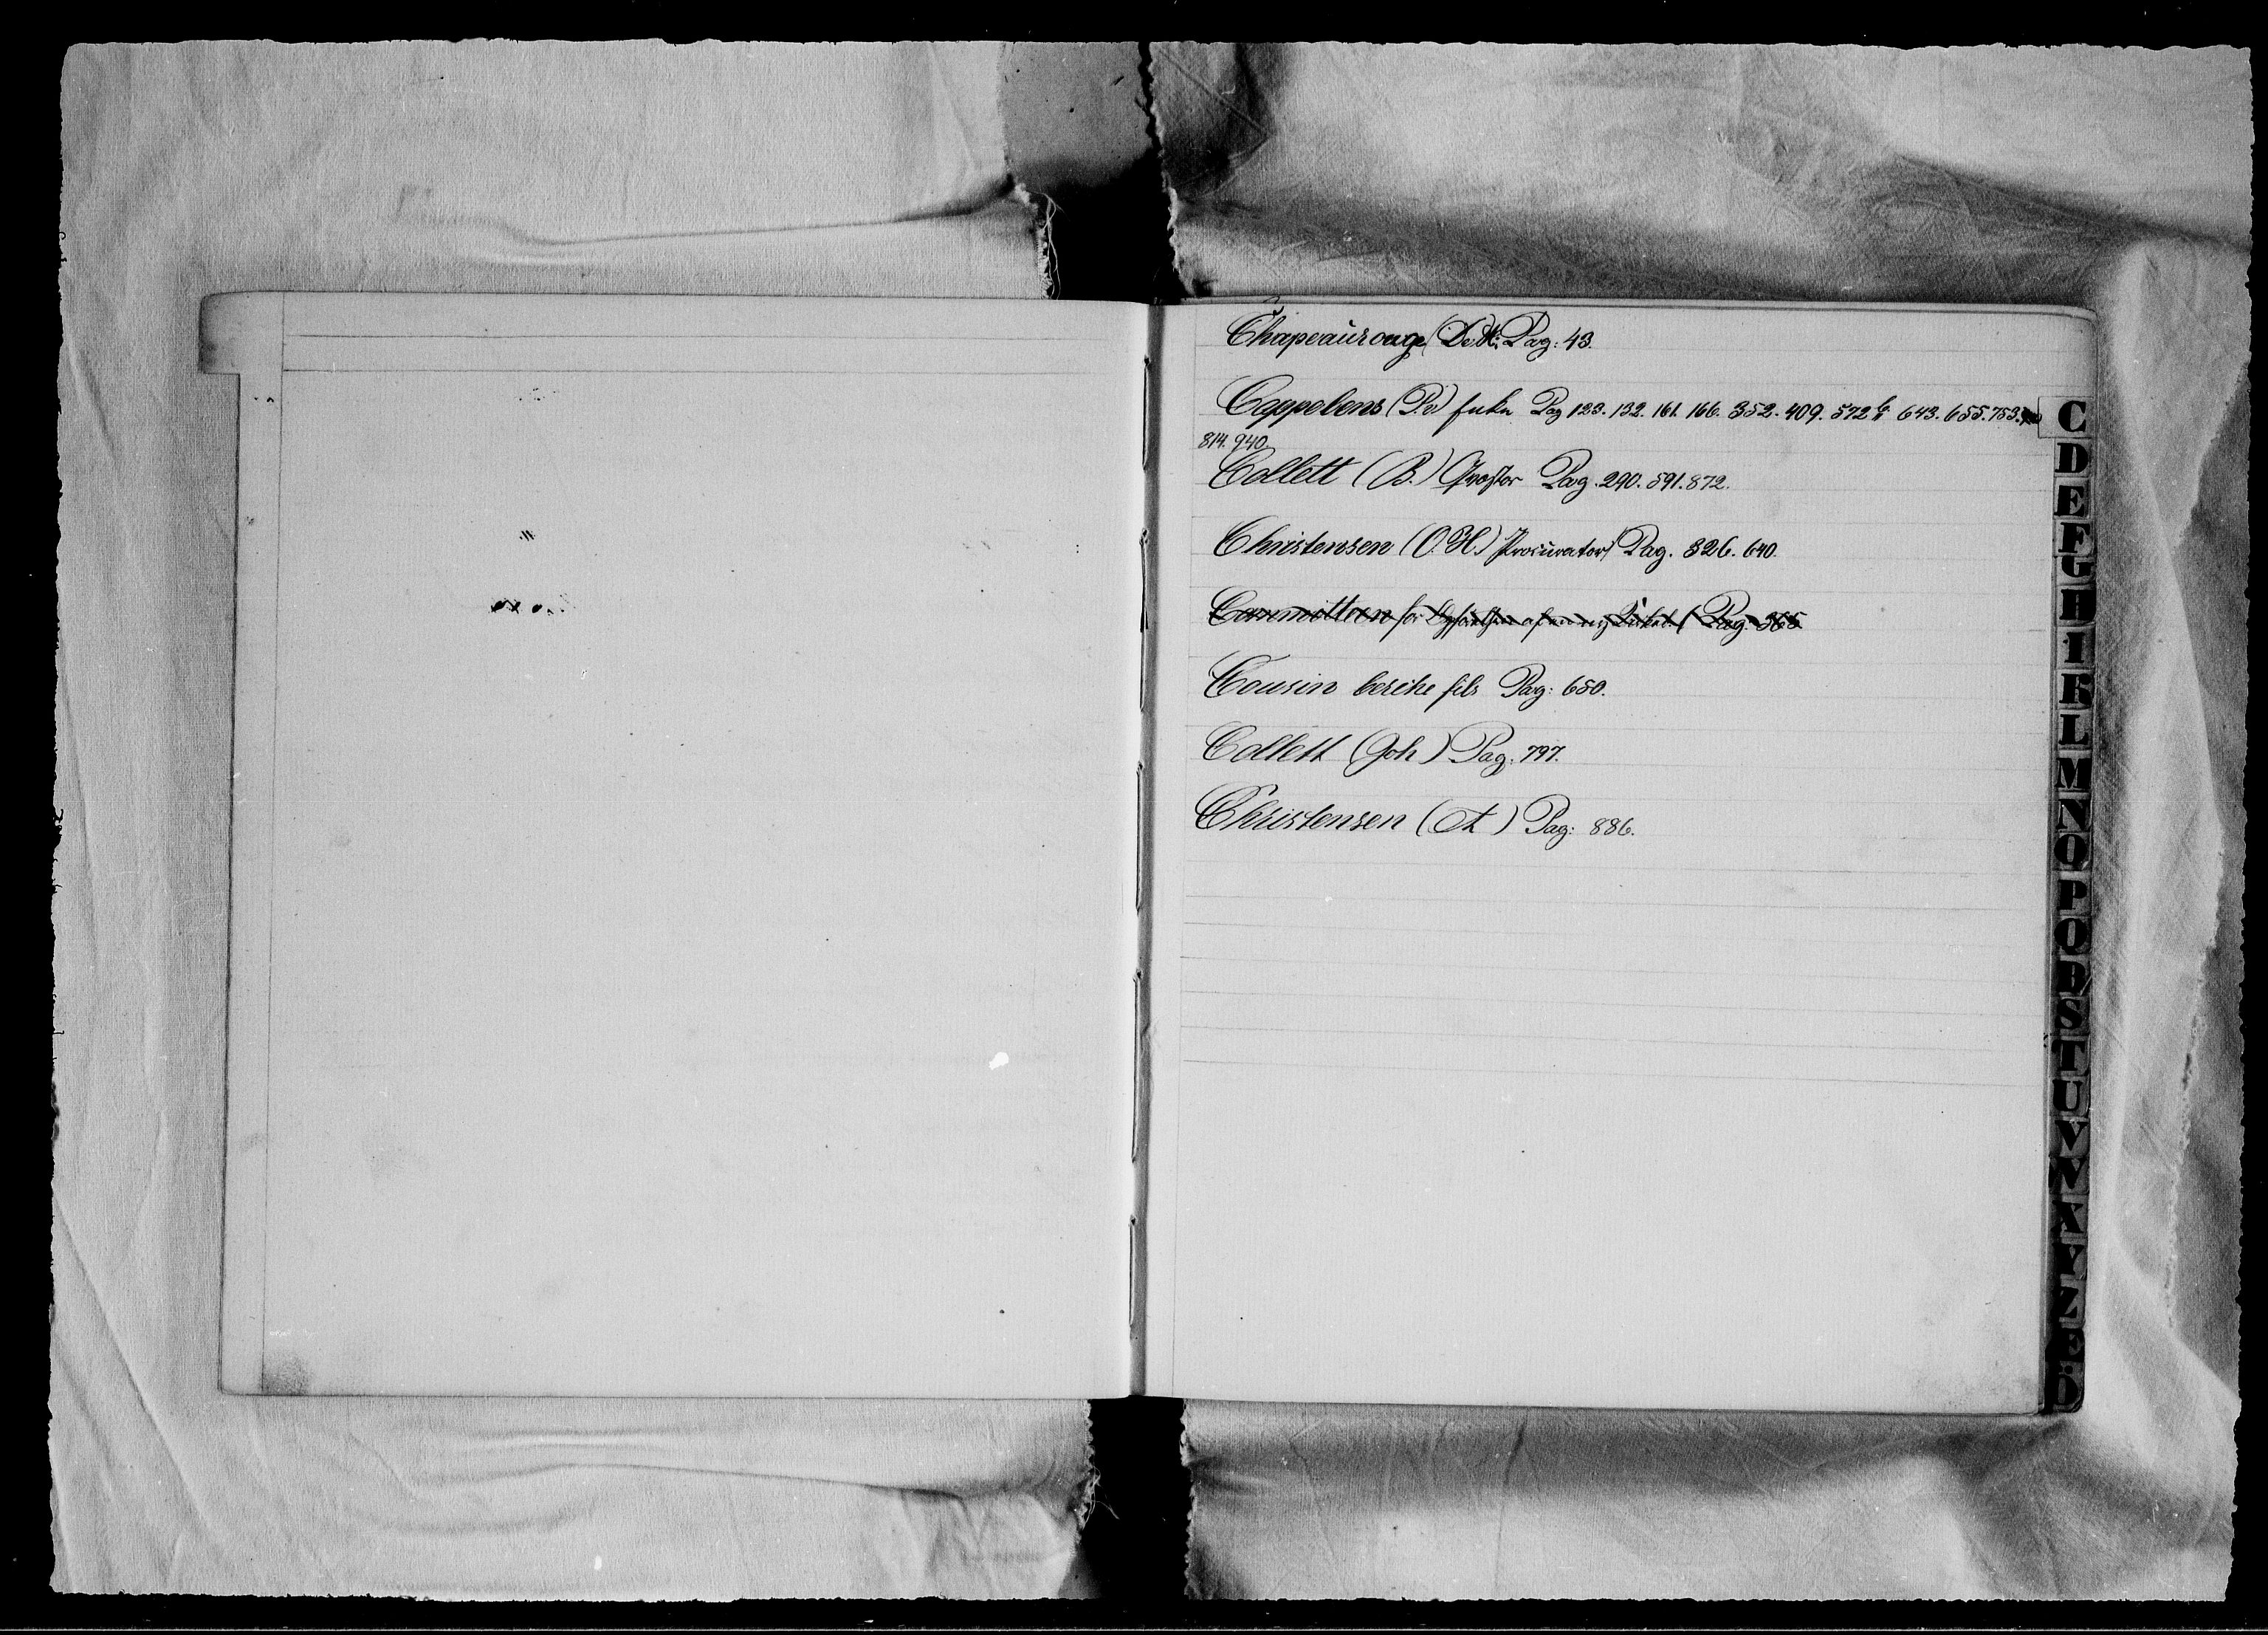 Chapeaurouge (De & Co) Pag: 43.
Cappelens (P. v) Enke Pag 123. 132. 161. 166. 352. 409. 572 643. 655. 753.
814. 940.
Collett (B.) Qvæstor Pag. 290. 591. 872.
Christensen (O. H.) Procurator Pag. 326. 640.
Committeen for af Pag. 365
Cousin fils Pag: 650.
Collett (Joh) Pag. 797.
Christensen (A) Pag: 886.
C
D
E
F
G
H
I
K
L
M
N
O
P
Q
R
S
T
U
V
W
X
Y
Z
Æ
Ö